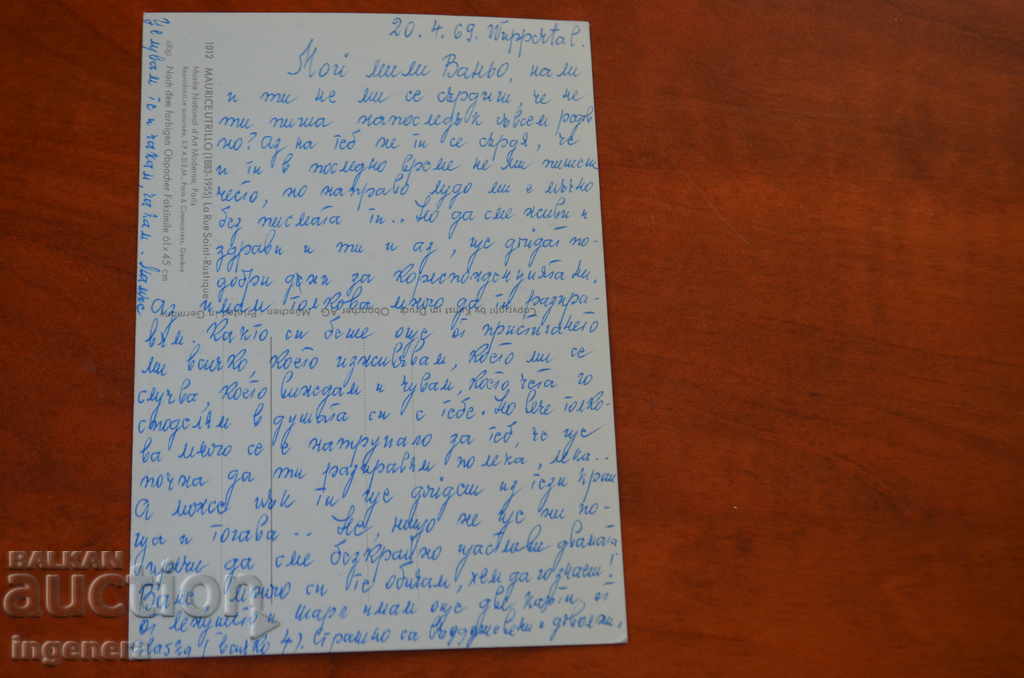 20.4.69. Wuppertal.
Мой мили Ваньо, нали
и ти не ми се сърдиш, че не
ти пиша напоследък съвсем редов
но? Аз на теб не ти се сърдя, че
и ти в последно време не ми пишеш
често, но направо лудо ми е мъчно
без писмата ти.. Но да сме живи и
здрави и ти и аз, ще дойдат по-
добри дни за кореспонденцията ни.
Аз имам толкова много да ти разпра-
вям. Както си беше още от пристигането
ми всичко, което изживявам, което ми се
случва, което виждам и чувам, което чета го
споделям в душата си с тебе. Но вече толко-
ва много се е натрупало за теб, че ще
почна да ти разправям полека, лека..
А може пък ти ще дойдеш из тези краи
ща и тогава.. Не, нищо не ще ни по-
пречи да сме безкрайно щастливи двамата
Ване много си те обичам, хем да го знаеш!
от и Шаге имам още две карти от
(всичко 4). Страшно са
Целувам те и чакам, чакам.
1012 MAURICE UTRILLO (1883-1955) La Rue Saint-Rustique
Musée National d'Art Moderne, Paris
Reproduction autorisée, S.P.A.D.E.M., Paris & Cosmopress, Genève
Nach dem farbigen Obpacher Faksimile 61 x 45 cm
Copyright by Kunst im Druck Obpacher AG München Printed in Germany
BALKAN
auction
ingener